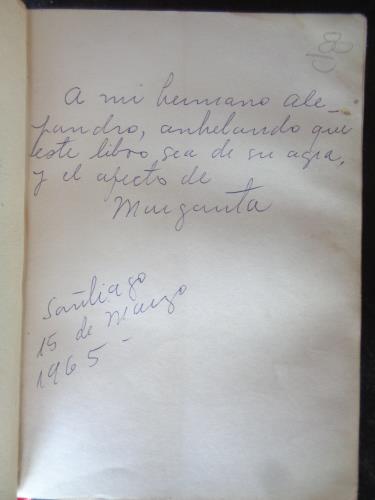 A mi hermano Ale_
jandro, anhelando que
este libro sea de su agra,
y el afecto de
Margarita
Santiago
15 de Marzo
1965 -